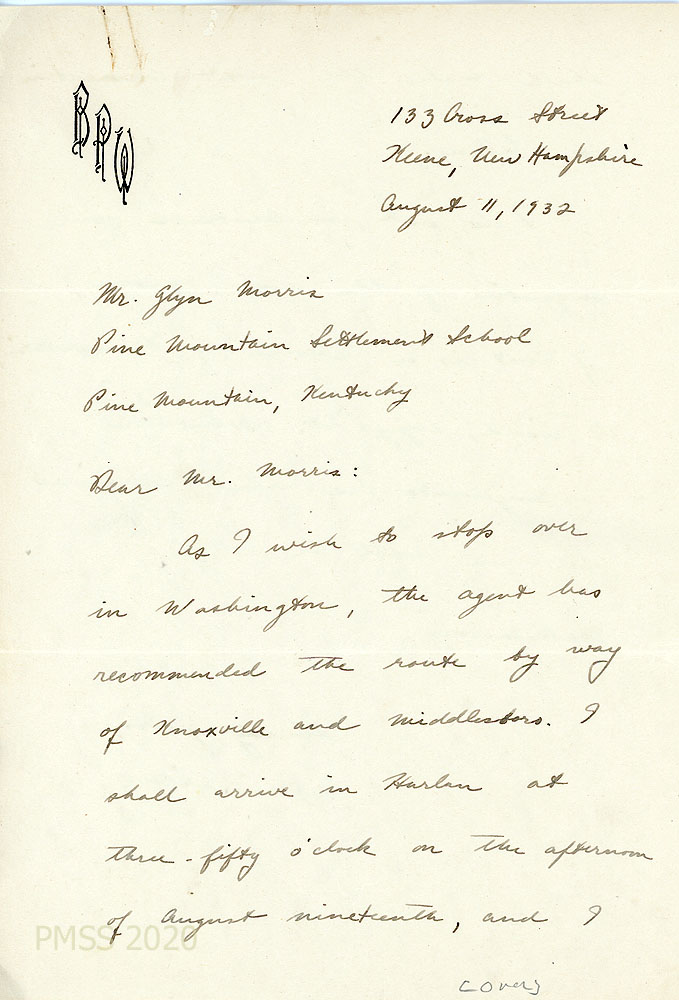 BPW
133 Cross Street
Keene, New Hampshire
August 11, 1932
Mr. Glyn Morris
Pine Mountain Settlement School
Pine Mountain, Kentucky
Dear Mr. Morris:
As I wish to stop over
in Washington, the agent has
recommended the route by way
of Knoxville and Middlesboro. I
shall arrive in Harlan at
three-fifty o'clock on the afternoon
of August nineteenth, and I
(over)
PMSS 2020